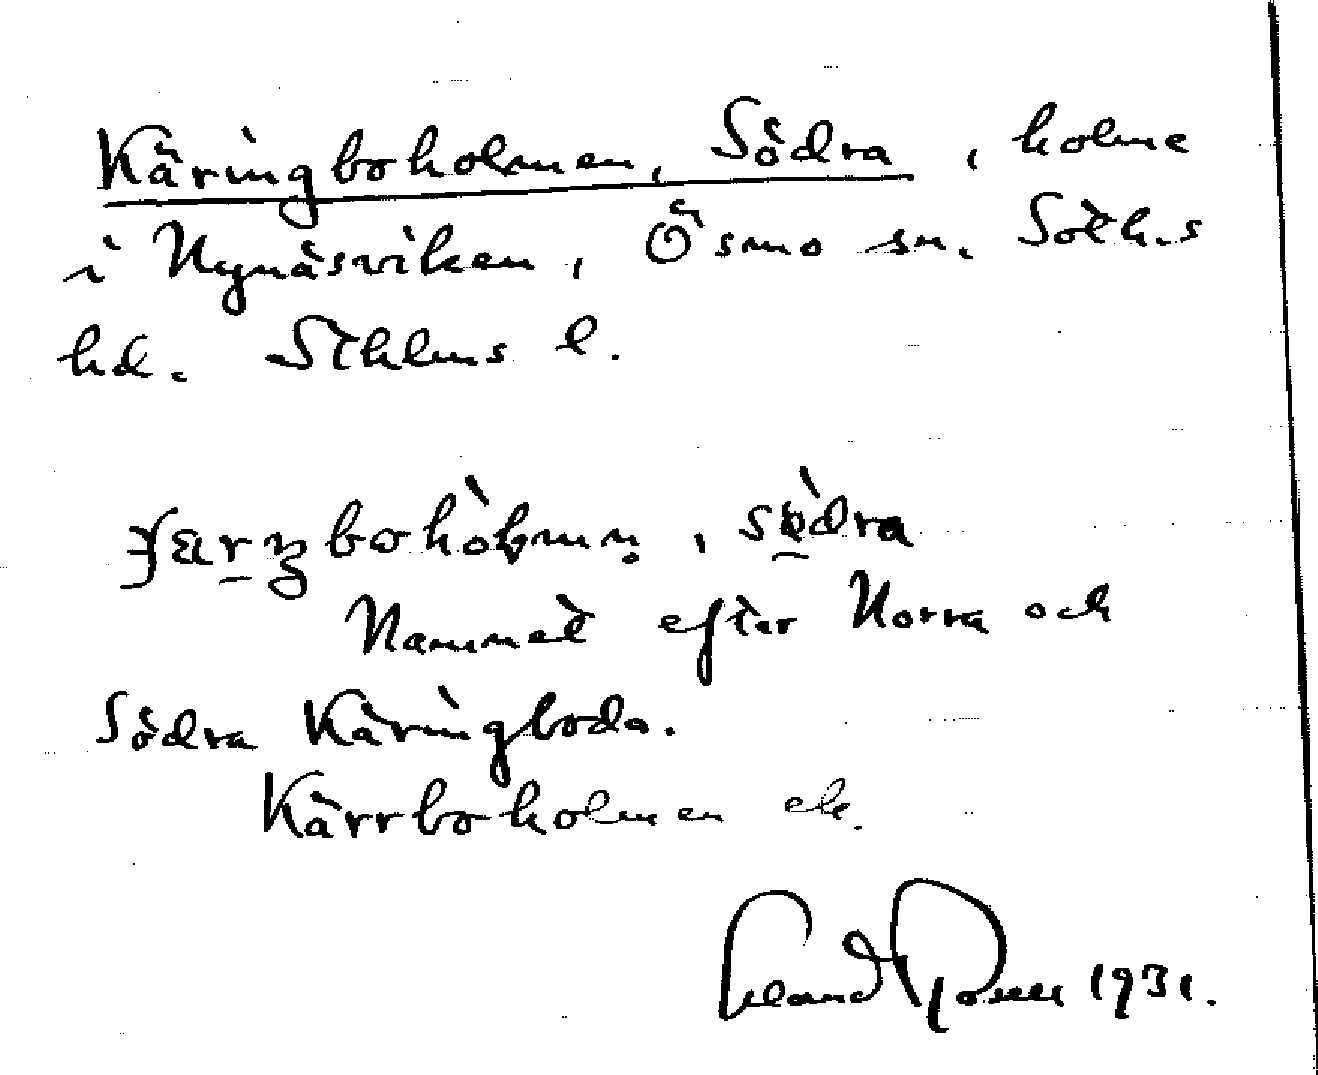 Käringboholmen, Södra, holme
i Nynäsviken, Ösmo sn. Soth.s
hd. Sthlms l.
södra
Namnet efter Norra och
Södra Käringboda.
Kärrboholmen ek.
Erland Rosell 1931.